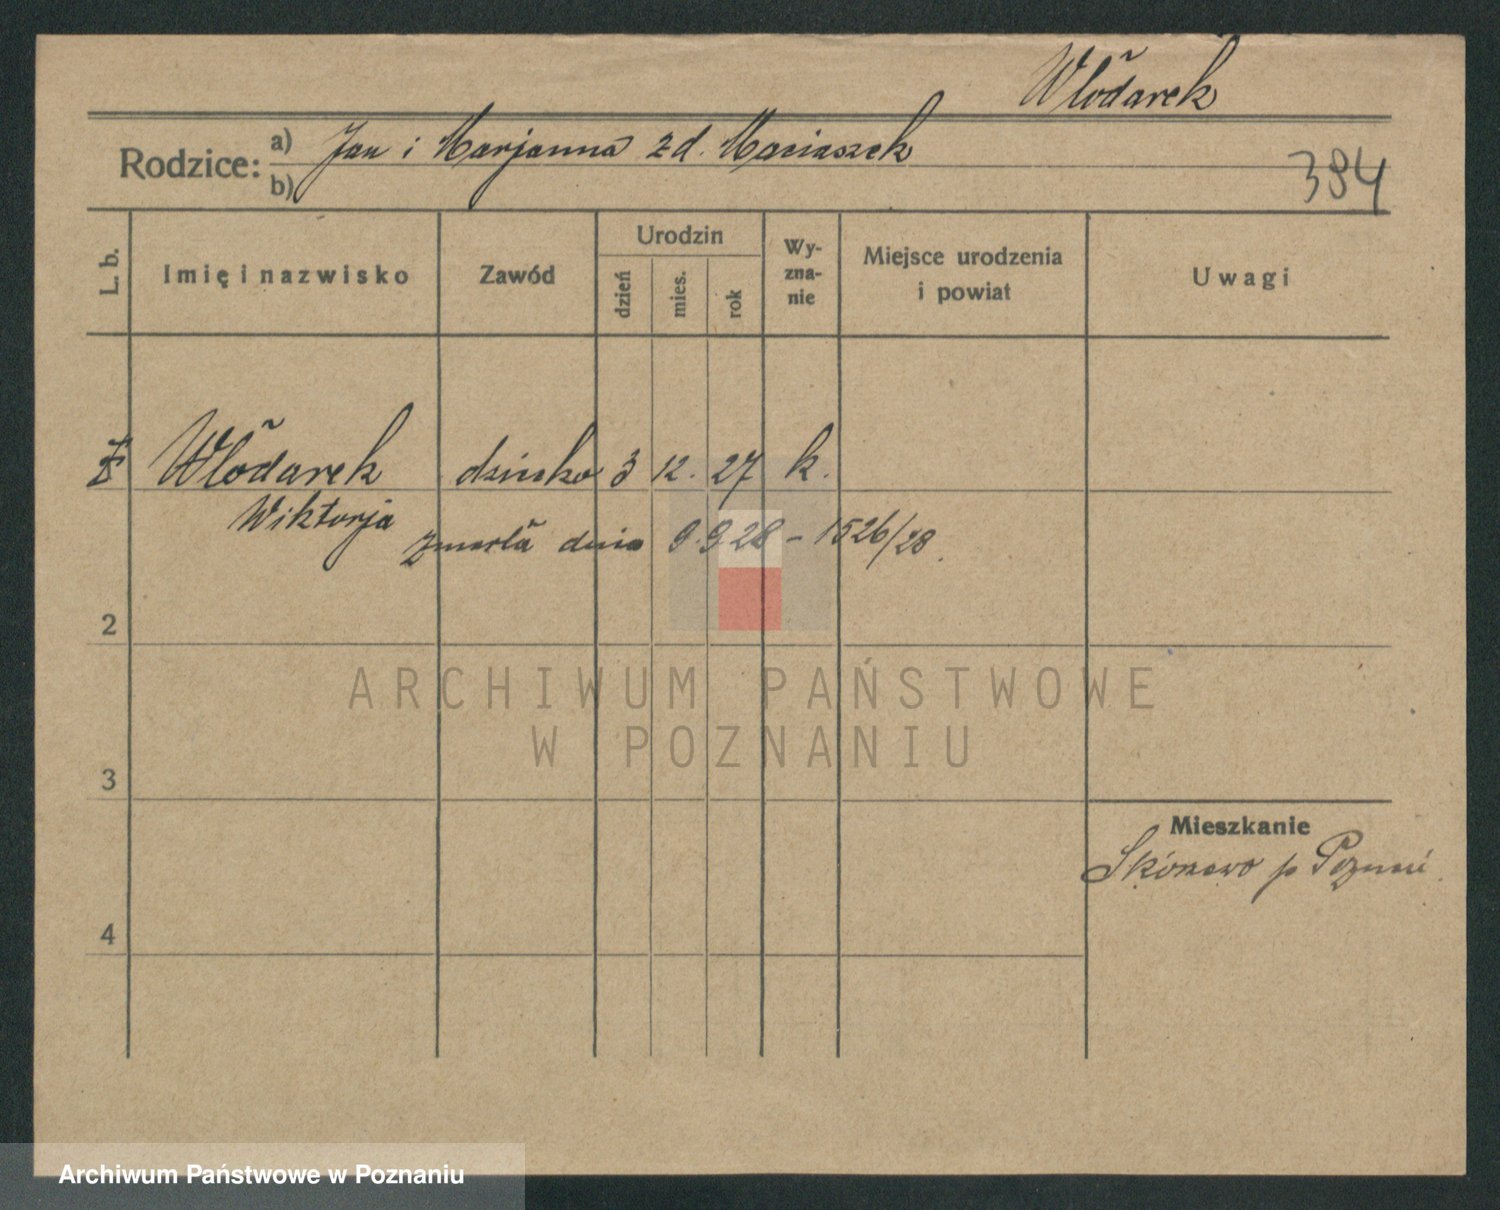 Włodarek
Rodzice: a) Jan i Marjanna zd. Maciaszek
b)
394
L. b.
Imię i nazwisko
Zawód
Urodzin
dzień
mies.
rok
Wy-
zna-
nie
Miejsce urodzenia
i powiat
Uwagi
Włodarek dziecko 3 12. 27 k.
Wiktorja
zmarła dnia 9.9.28 - 1526/28.
2
3
4
ARCHIWUM PAŃSTWOWE
W POZNANIU
Mieszkanie
p Poznań
Archiwum Państwowe w Poznaniu